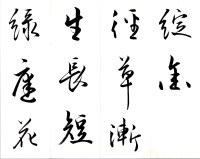 綻金
徑草漸
生長短
綠庭花